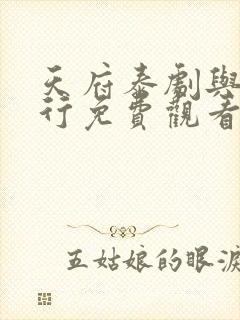 天府泰劇與
行免費觀看
五姑娘的眼淚